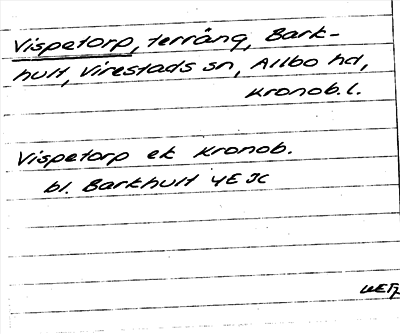 Vispetorp, terräng, Bark-
hult, Virestads sn, Allbo hd,
Kronob. l.
Vispetorp ek Kronob.
bl. Barkhult 4E